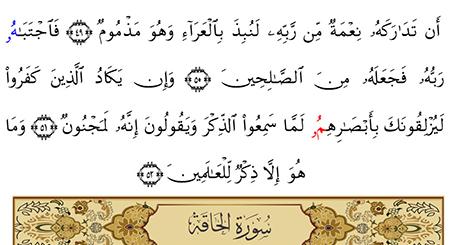 أَن تَدَٰرَكَهُۥ نِعْمَةٌ مِّن رَّبِّهِۦ لَنُبِذَ بِٱلْعَرَآءِ وَهُوَ مَذْمُومٌ ﴿٤٩﴾ فَٱجْتَبَٰهُۥ
رَبُّهُۥ فَجَعَلَهُۥ مِنَ ٱلصَّٰلِحِينَ ﴿٥٠﴾ وَإِن يَكَادُ ٱلَّذِينَ كَفَرُوا۟
لَيُزْلِقُونَكَ بِأَبْصَٰرِهِمُۥ لَمَّا سَمِعُوا۟ ٱلذِّكْرَ وَيَقُولُونَ إِنَّهُۥ لَمَجْنُونٌ ﴿٥١﴾ وَمَا
هُوَ إِلَّا ذِكْرٌ لِّلْعَٰلَمِينَ ﴿٥٢﴾
سُورَةُ الحَاقَّة